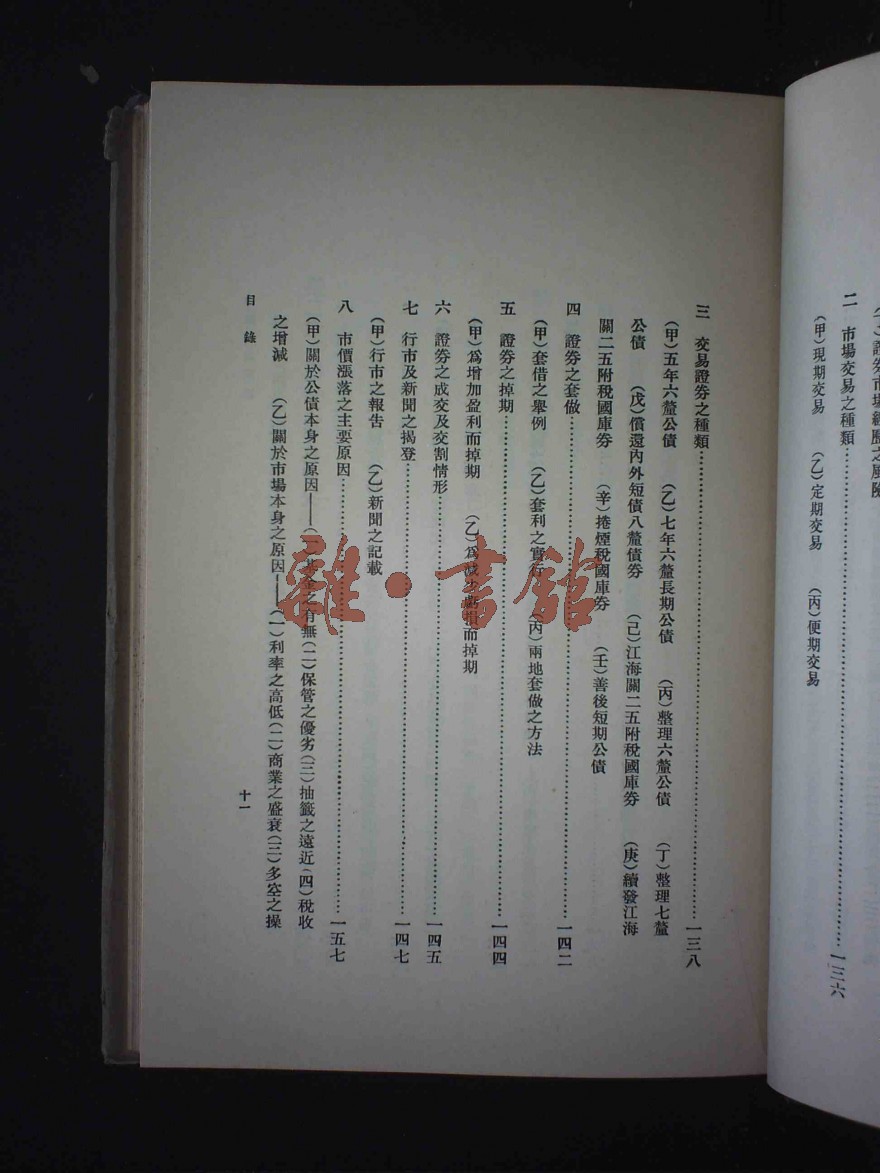 證券市場經歷之風險
二　市場交易之種類……一三六
（甲）現期交易　（乙）定期交易　（丙）便期交易
三　交易證券之種類……一三八
（甲）五年六釐公債　（乙）七年六釐長期公債　（丙）整理六釐公債　（丁）整理七釐
公債　（戊）償還內外短債八釐債券　（己）江海關二五附稅國庫券　（庚）續發江海
關二五附稅國庫券　（辛）捲煙稅國庫券　（壬）善後短期公債
四　證券之套做……一四二
（甲）套借之舉例　（乙）套利之實行　（丙）兩地套做之方法
五　證券之掉期……一四四
（甲）爲增加盈利而掉期　（乙）爲減少虧損而掉期
六　證券之成交及交割情形……一四五
七　行市及新聞之揭登……一四七
（甲）行市之報告　（乙）新聞之記載
八　市價漲落之主要原因……一五七
（甲）關於公債本身之原因——（一）基金之有無（二）保管之優劣（三）抽籤之遠近（四）稅收
之增減　（乙）關於市場本身之原因——（一）利率之高低（二）商業之盛衰（三）多空之操
目錄
十一
雜·書館